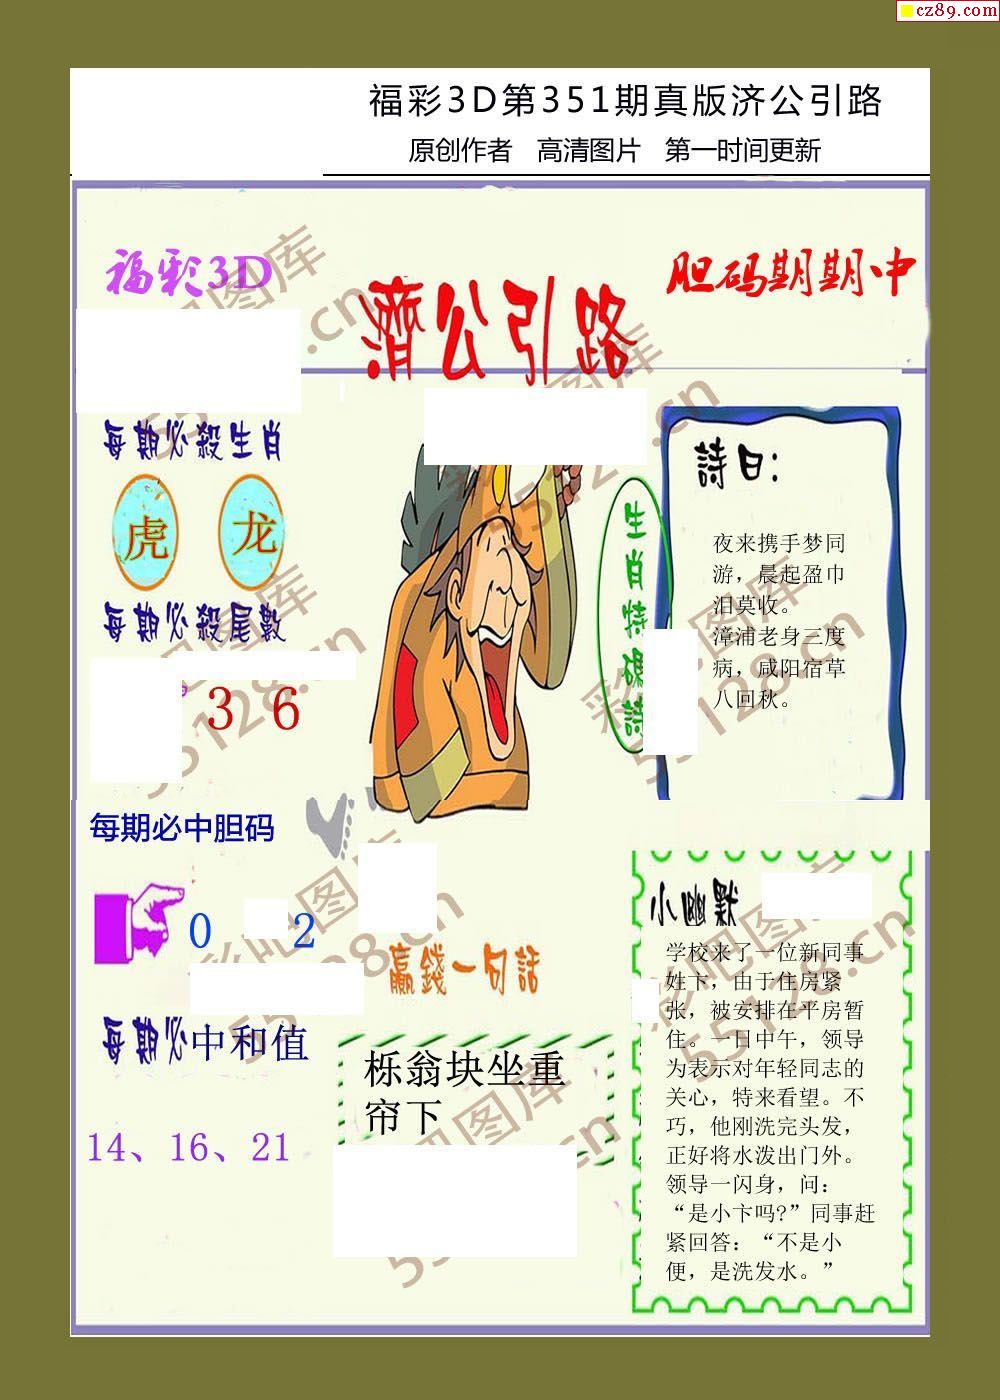 cz89.com
福彩3D第351期真版济公引路
原创作者 高清图片 第一时间更新
福彩3D
濟公引路
胆码期期中
每期必殺生肖
虎 龙
每期必殺尾數
3 6
生肖特碼詩
詩曰：
夜来携手梦同
游，晨起盈巾
泪莫收。
漳浦老身三度
病，咸阳宿草
八回秋。
每期必中胆码
0 2
每期必中和值
14、16、21
贏錢一句話
栎翁块坐重
帘下
小幽默
学校来了一位新同事
姓卞，由于住房紧
张，被安排在平房暂
住。一日中午，领导
为表示对年轻同志的
关心，特来看望。不
巧，他刚洗完头发，
正好将水泼出门外。
领导一闪身，问：
“是小卞吗?”同事赶
紧回答：“不是小
便，是洗发水。”
彩吧图库
55128.cn